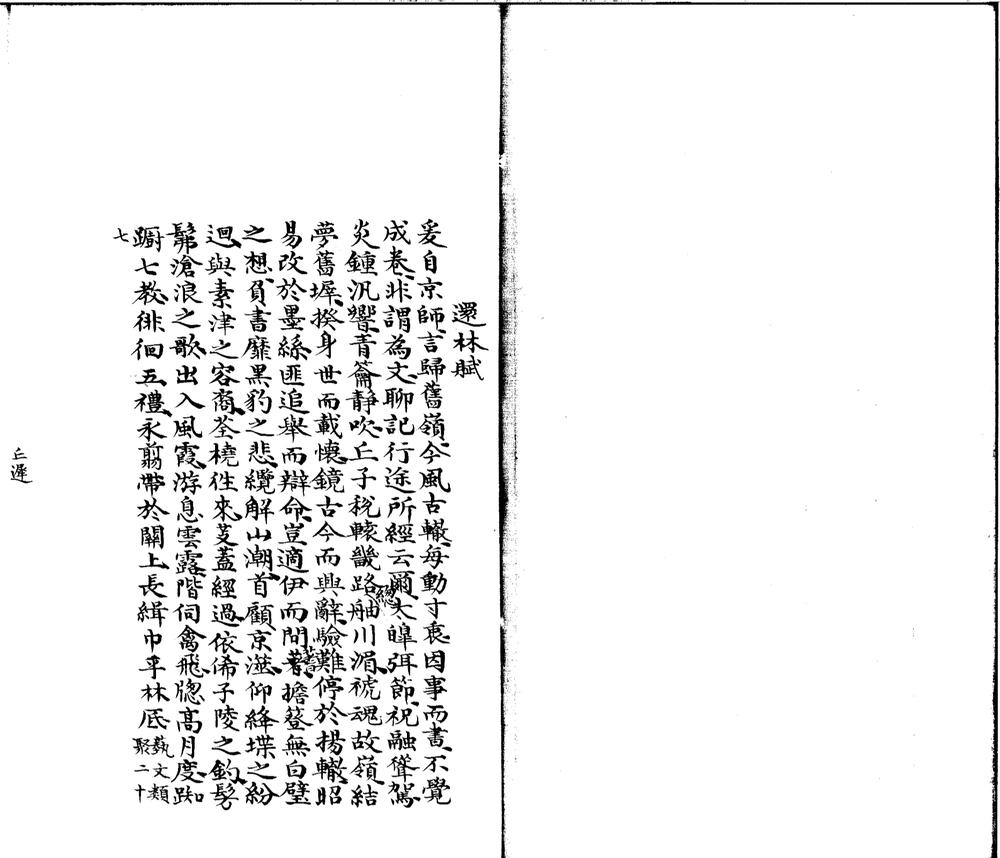 還林賦
爰自京師言歸舊嶺今風古轍每動寸衷因事而書不覺
成卷非謂為文聊記行途所經云爾太皞弭節祝融聳駕
炎鍾汎響青籥靜吹丘子稅轅畿路舳川湄褫魂故嶺結
夢舊墀揆身世而載懷鏡古今而興辭驗難停於揚轍昭
易改於墨絲匪追舉而辯命豈適伊而問蓍擔簦無白璧
之想負書靡黑豹之悲纜解山潮首顧京滋仰絳堞之紛
迴與素津之容裔荃橈往來芰蓋經過依俙子陵之釣髣
髴滄浪之歌出入風霞游息雲露階伺禽飛牕高月度踟
躕七教徘徊五禮永翦帶於關上長緝巾乎林底藝文類聚二十
七
丘遲